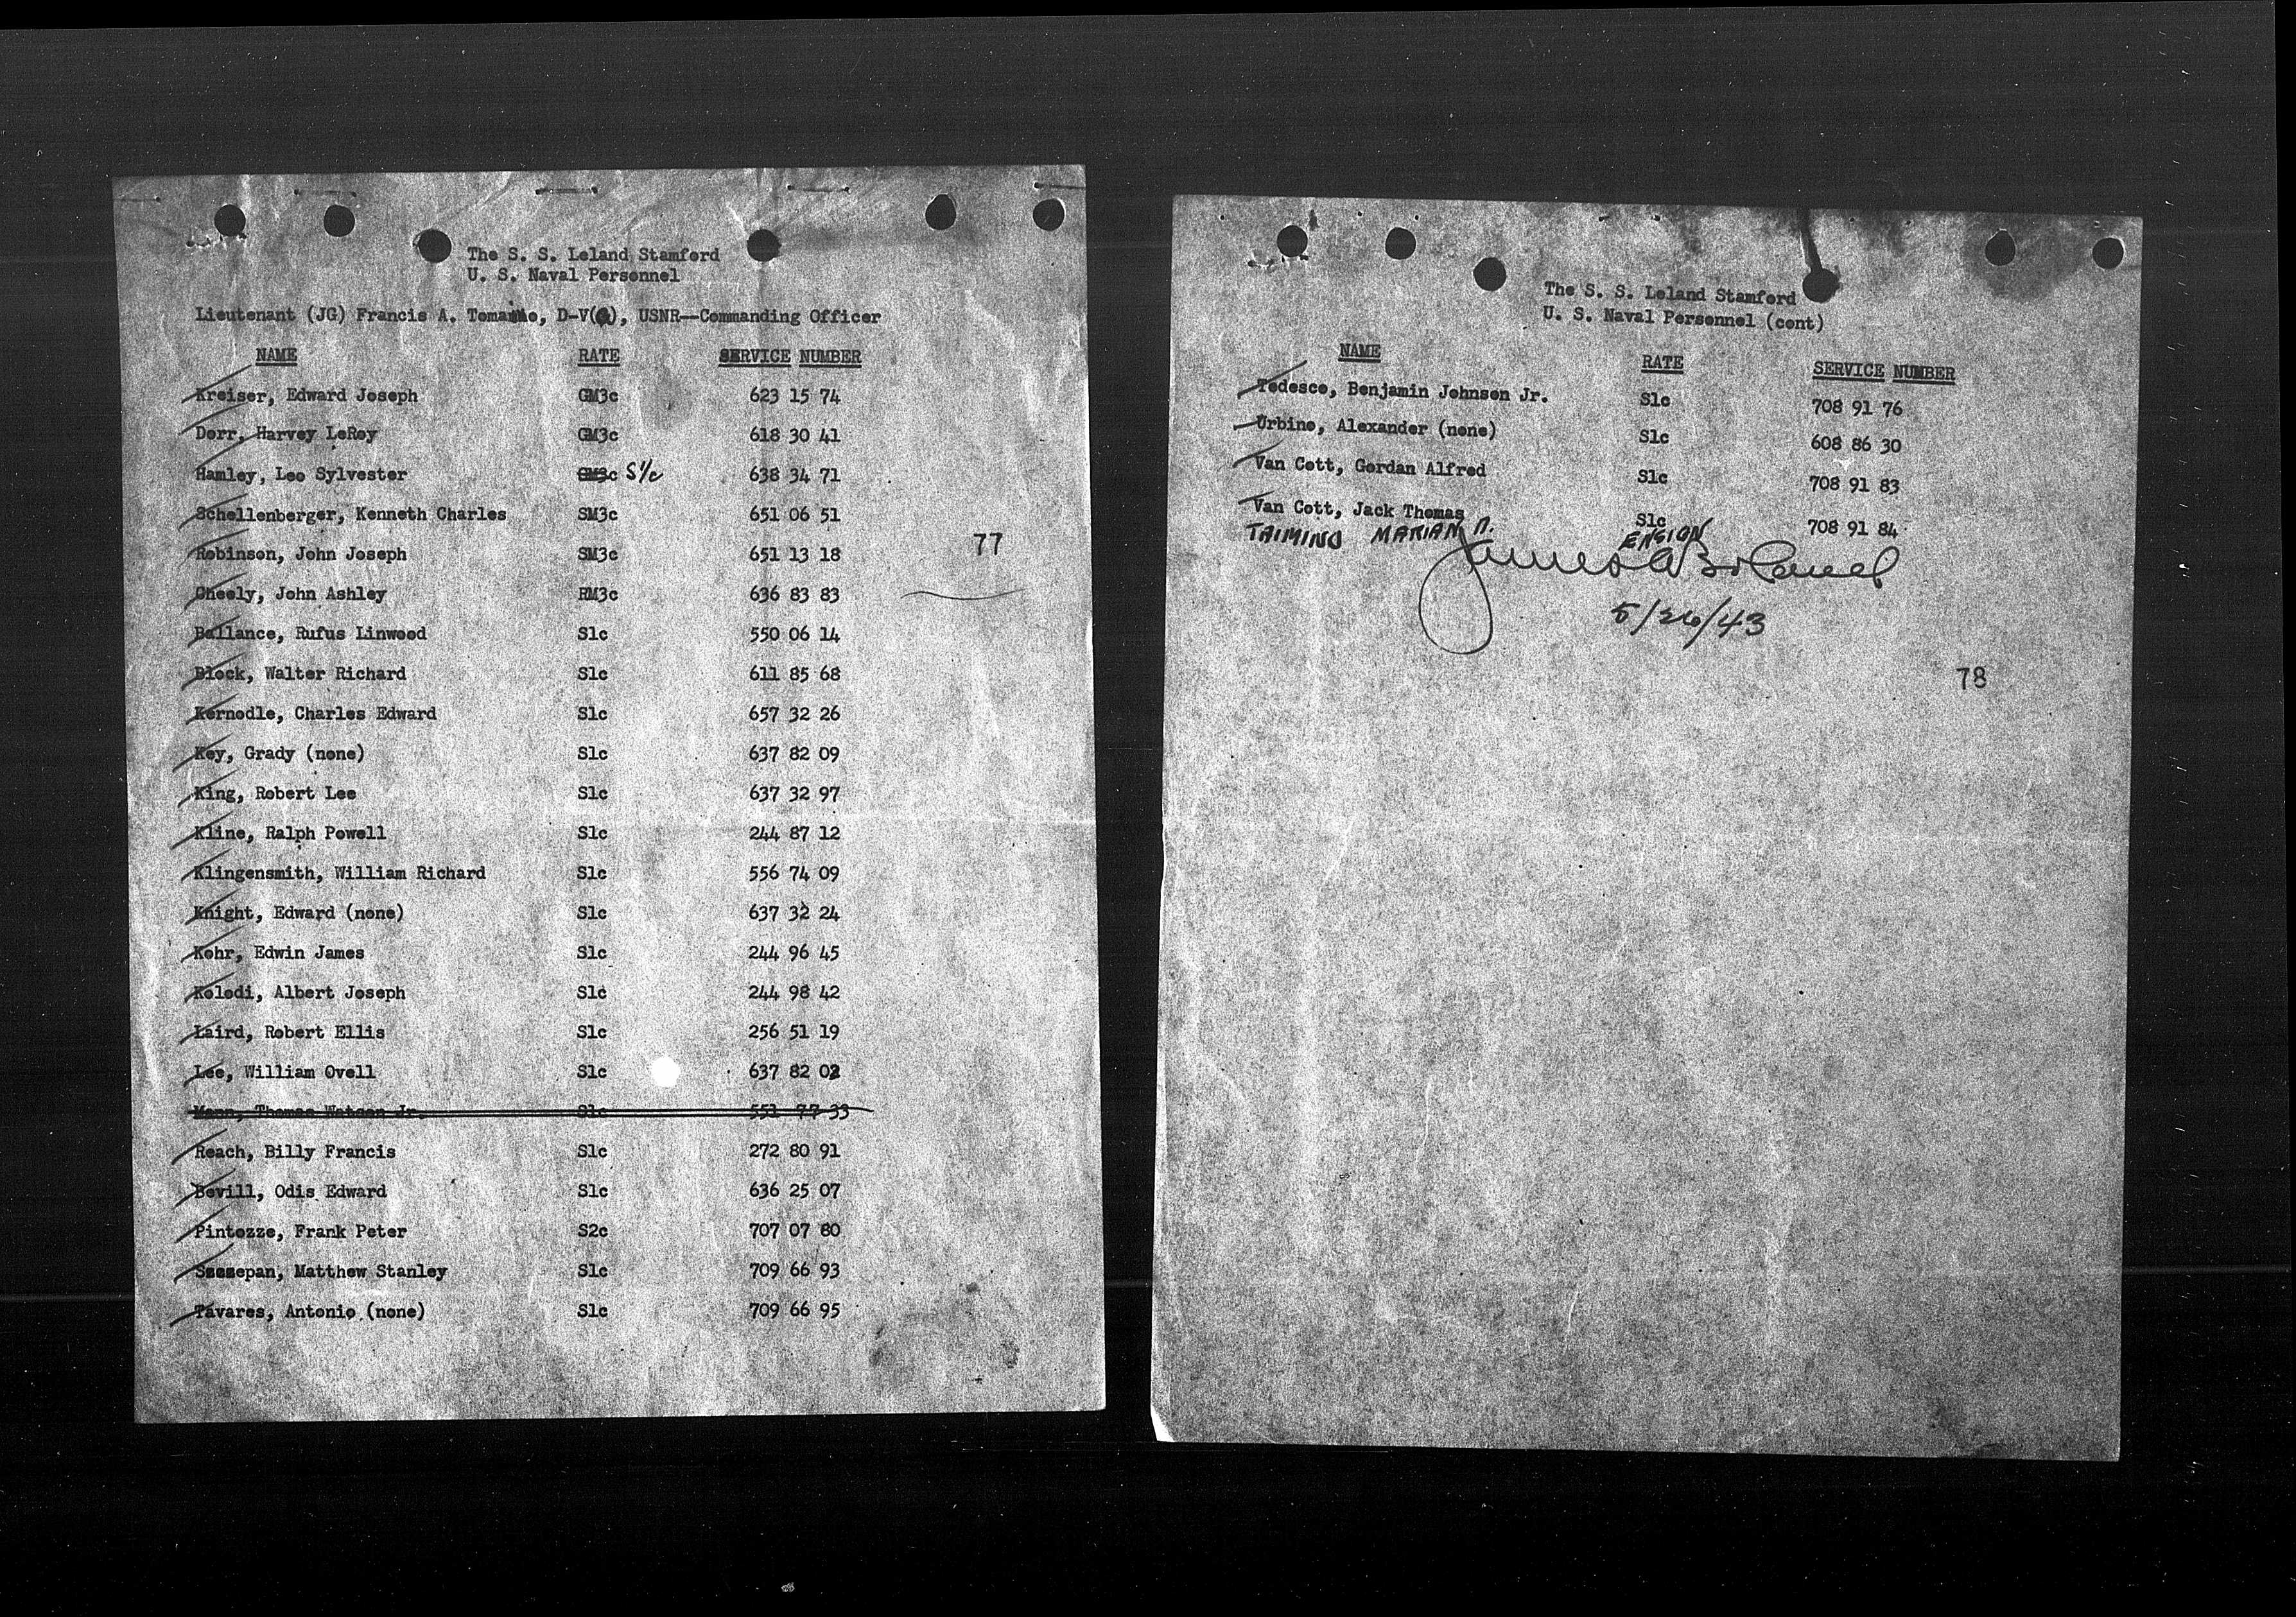 The S. S. Leland Stamford
U. S. Naval Personnel
Lieutenant (JG) Francis A. , D-V( ), USNR—Commanding Officer
NAME RATE SERVICE NUMBER
Kreiser, Edward Joseph GM3c 623 15 74
Dorr, Harvey LeRoy GM3c 618 30 41
Hamley, Leo Sylvester GM3c S1/c 638 34 71
Schellenberger, Kenneth Charles SM3c 651 06 51
77
Robinson, John Joseph SM3c 651 13 18
Cheely, John Ashley RM3c 636 83 83
Ballance, Rufus Linwood S1c 550 06 14
Block, Walter Richard S1c 611 85 68
Kernodle, Charles Edward S1c 657 32 26
Key, Grady (none) S1c 637 82 09
King, Robert Lee S1c 637 32 97
Kline, Ralph Powell S1c 244 87 12
Klingensmith, William Richard S1c 556 74 09
Knight, Edward (none) S1c 637 32 24
Kohr, Edwin James S1c 244 96 45
Kolodi, Albert Joseph S1c 244 98 42
Laird, Robert Ellis S1c 256 51 19
Lee, William Ovell S1c 637 82 02
Mann, Thomas Watson Jr. S1c 551 77 33
Reach, Billy Francis S1c 272 80 91
Bevill, Odis Edward S1c 636 25 07
Pintozze, Frank Peter S2c 707 07 80
Szczepan, Matthew Stanley S1c 709 66 93
Tavares, Antonio (none) S1c 709 66 95
The S. S. Leland Stamford
U. S. Naval Personnel (cont)
NAME RATE SERVICE NUMBER
Tedesco, Benjamin Johnson Jr. S1c 708 91 76
Urbino, Alexander (none) S1c 608 86 30
Van Cott, Gordan Alfred S1c 708 91 83
Van Cott, Jack Thomas S1c 708 91 84
TAIMINO MARIAN N. ENSIGN
James A Boland
5/26/43
78